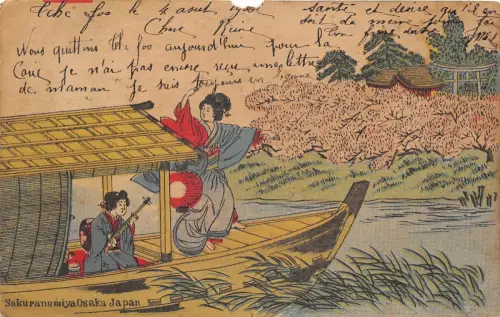 Tché foo le 4 aout
Chère Reine
Nous quittons Tché foo aujourd'hui pour la
Corée Je n'ai pas encore reçu une lettre
de maman Je suis toujours en bonne
santé et désire qu'il en
soit de même pour
Ton
Sakuranomiya Osaka Japan